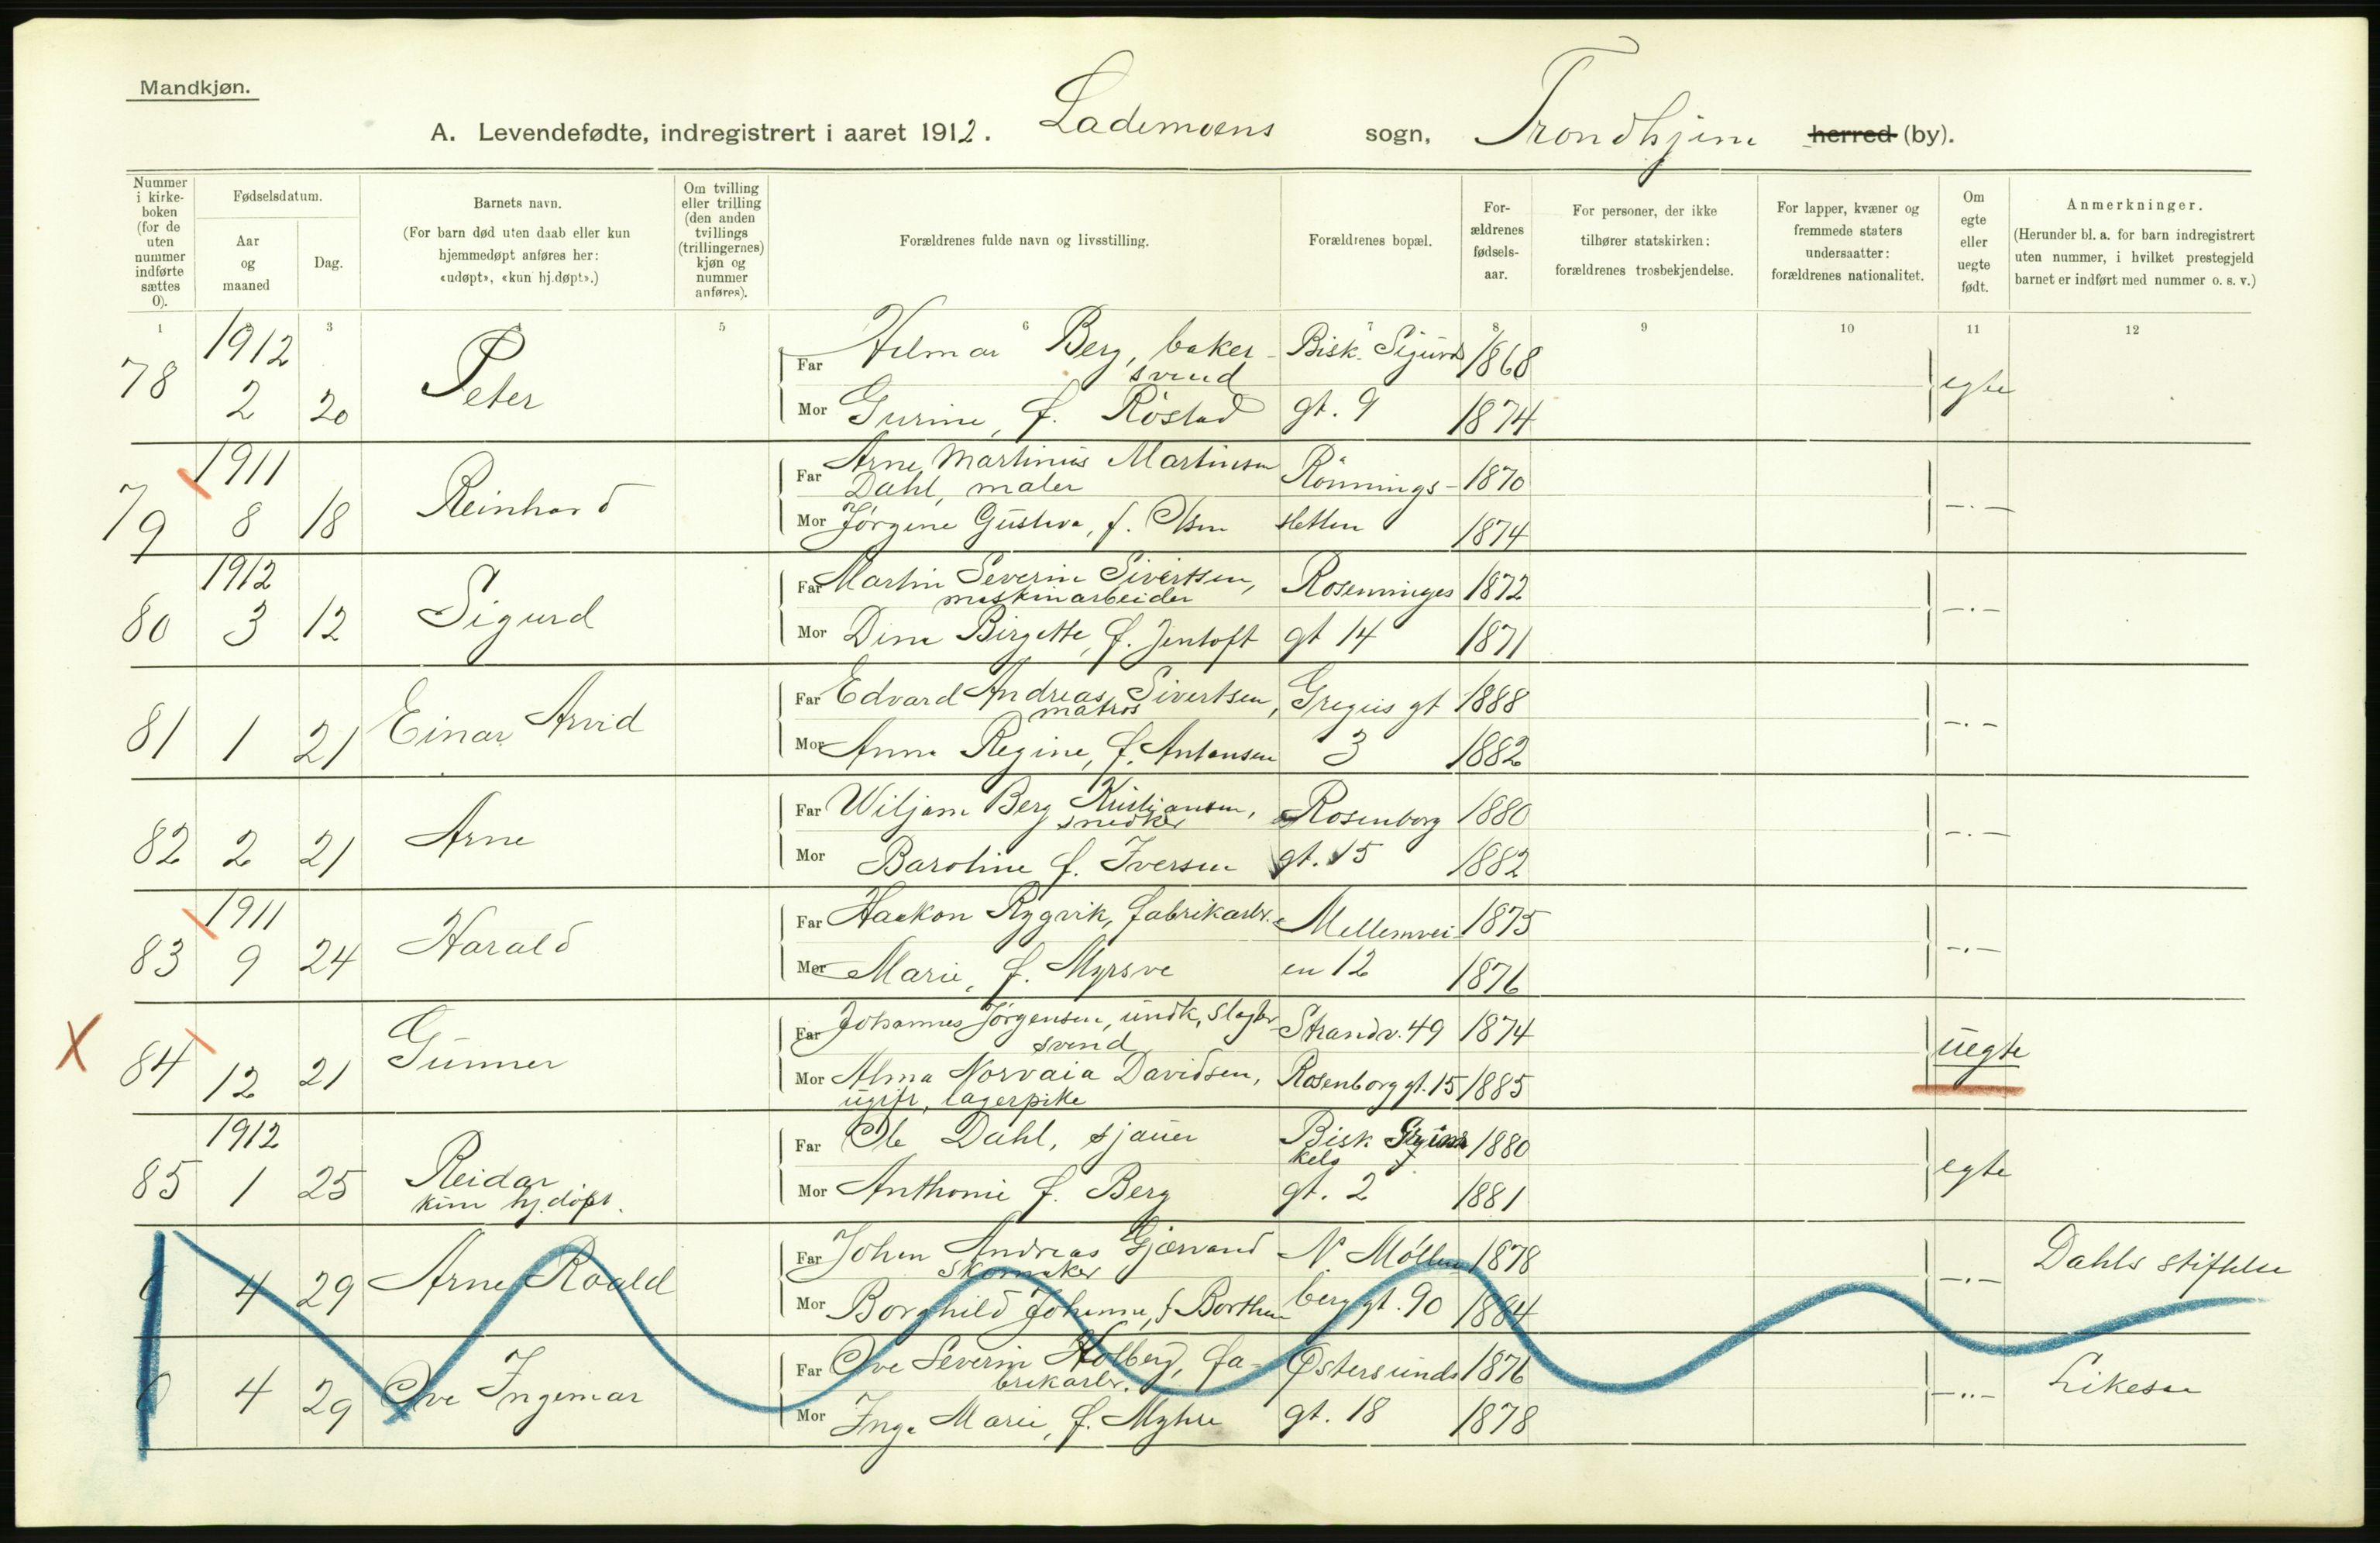 Mandkjøn.
A. Levendefødte, indregistrert i aaret 1912. Lademoens sogn, Trondhjem herred (by).
Nummer i kirke-boken (for de uten nummer indførte sættes 0).
Fødselsdatum.
Aar og maaned
Dag.
Barnets navn.
(For barn død uten daab eller kun hjemmedøpt anføres her: «udøpt», «kun hj.døpt».)
Om tvilling eller trilling (den anden tvillings (trillingernes) kjøn og nummer anføres).
Forældrenes fulde navn og livsstilling.
Forældrenes bopæl.
For-ældrenes fødsels-aar.
For personer, der ikke tilhører statskirken: forældrenes trosbekjendelse.
For lapper, kvæner og fremmede staters undersaatter: forældrenes nationalitet.
Om egte eller uegte født.
Anmerkninger.
(Herunder bl. a. for barn indregistrert uten nummer, i hvilket prestegjeld barnet er indført med nummer o. s. v.)
1 3 5 6 7 8 9 10 11 12
78 1912 2 20 Peter
Far Hilmar Berg, baker-svend Bisk. Sigurds 1868 egte
Mor Gurine, f. Röstad gt. 9 1874
79 1911 8 18 Reinhard
Far Arne Martinus Martinsen Dahl, maler Rönnings- 1870 -.-
Mor Jörgine Gustava, f. Olsen sletten 1874
80 1912 3 12 Sigurd
Far Martin Severin Sivertsen, maskinarbeider Rosenninges 1872 -.-
Mor Dina Birgitte, f. Jentoft gt 14 1871
81 1 21 Einar Arvid
Far Edvard Andreas Sivertsen, matros Gregus gt 1888 -.-
Mor Anna Regine, f. Antonsen 3 1882
82 2 21 Arne
Far Wiljam Berg Kristiansen, snedker Rosenborg 1880 -.-
Mor Baroline f. Iversen gt. 15 1882
83 1911 9 24 Harald
Far Haakon Rygvik, fabrikarb. Mellemvei- 1875 -.-
Mor Marie, f. Myrsve en 12 1876
X 84 12 21 Gunnar
Far Johannes Jörgensen, undk, slagter svend Strandv. 49 1874 uegte
Mor Alma Norvaia Davidsen, ugift, lagerpike Rosenborg gt. 15 1885
85 1912 1 25 Reidar kun hj.döpt.
Far Ole Dahl, sjauer Bisk Grimkels 1880 egte
Mor Anthonie f. Berg gt. 2 1881
0 4 29 Arne Roald
Far Johan Andreas Gjærvand skomaker N. Möllen 1878 -.- Dahls stiftelse
Mor Borghild Johanne, f Borthen berg gt. 90 1884
0 4 29 Ove Ingemar
Far Ove Severin Holberg, fabrikarb. Östersunds 1876 -..- Likesaa
Mor Inga Marie, f. Myhre gt. 18 1878